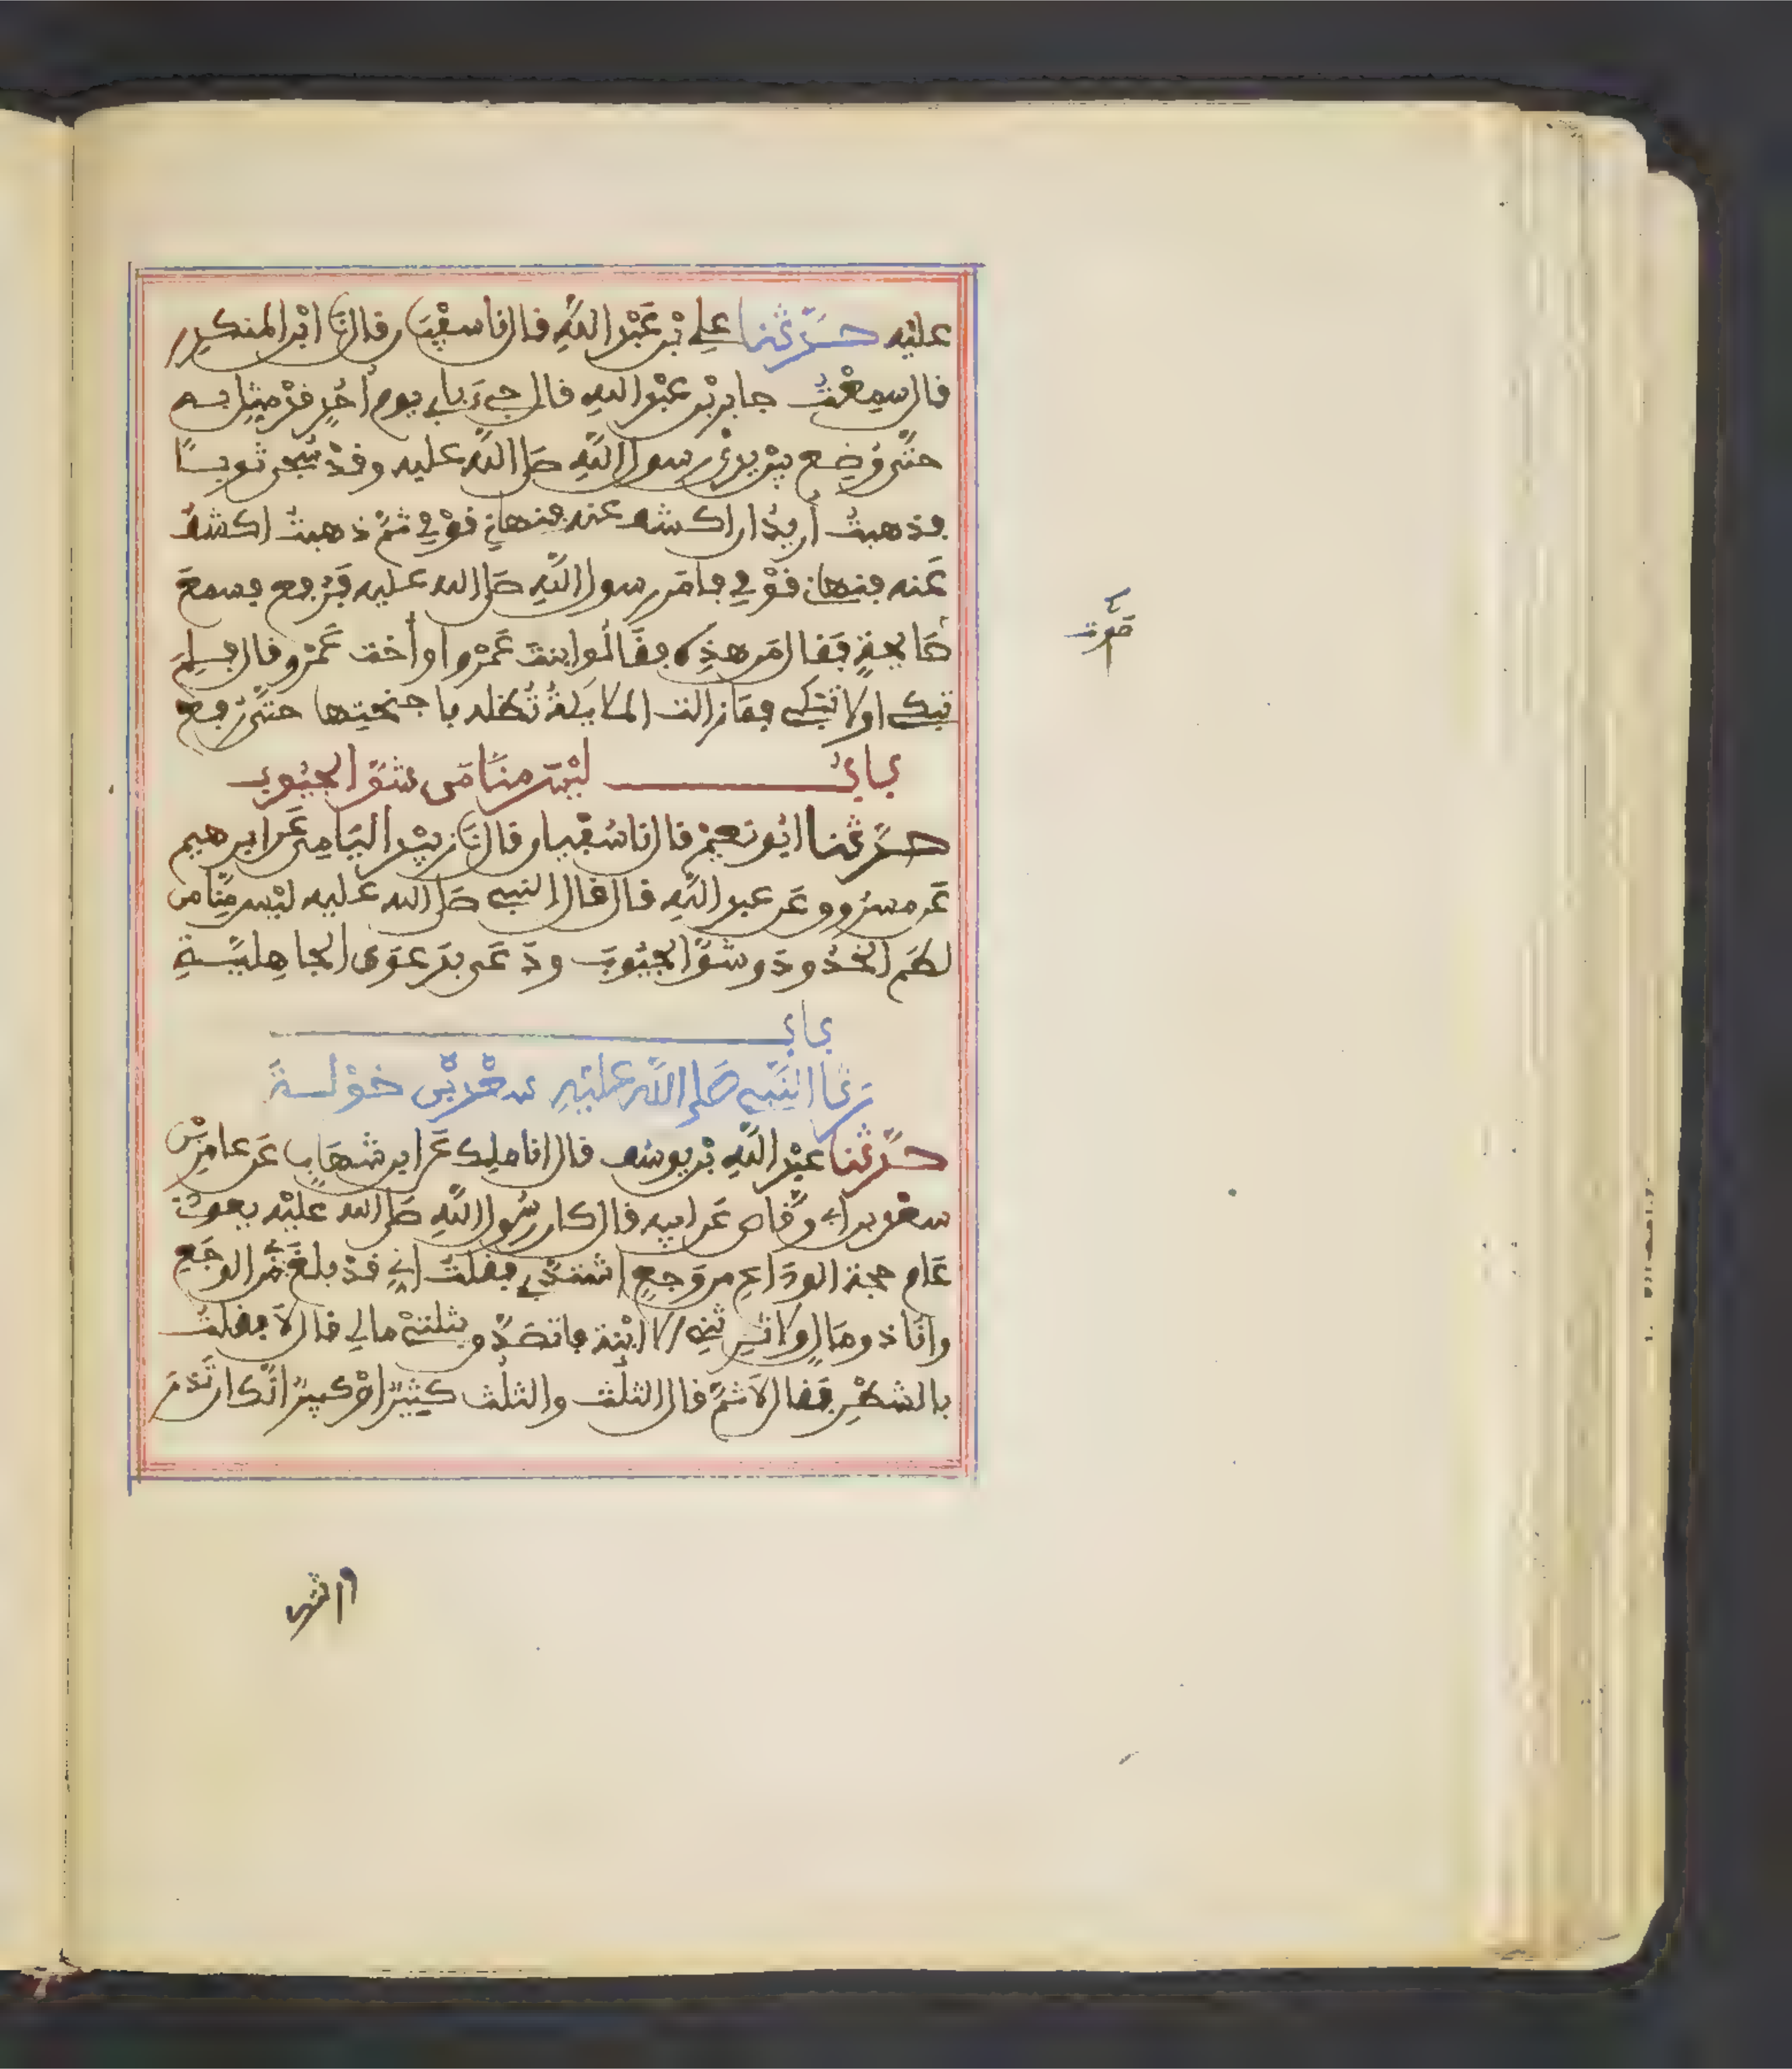 عليه حدّثنا علي بْن عَبْد اللهِ قال نا سفْيَان قال نَا ابْن المنكدِر
قال سمِعْتُ جابر بْن عبْد اللهِ قال جيءَ بأبي يوم أُحُدٍ قدْ مُثِّل بـه
حتَّى وُضِع بيْن يدَيْ رسول اللهِ صَلى الله عليه وقدْ سُجِّى ثوبًـا
فذهبتُ أُريدُ ان اكشف عنه فنهانِي قوْمِي ثمّ ذهبتُ اكشفُ
عَنه فنهانِي قوْمِي فأمَر رسول اللهِ صَلى الله عليه فَرُفِع فسمعَ
صَايحةٍ فَقال مَن هذِه فقَالُوا ابنتُ عَمْرٍو او أُختُ عَمْرٍو قال فلِمَ
تبكي اولا تَبْكي فمَا زالت الملايكةُ تُظله باجنحتها حتَّى رُفِع
بـابُ لَيْسَ منَّا مَن شَقَّ الجُيُوب
حدَّثنا ابُو نعيْم قال نا سُفْيان قال نَا زبيْد اليَامِي عَن ابرهيم
عَن مسرُوق عَن عبد اللهِ قال قال النبي صَلى الله عَليه ليْس مِنَّا من
لطَم الخُدُودَ وشقَّ الجُيُوبَ ودَعَى بدَعْوَى الجاهِليّـةِ
بـاب
رَثَا النَّبِي صَلى اللَّه عليْهِ سعْد بْن خوْلـةَ
حدَّثنا عبْد اللهِ بْن يوسُف قال انا ملِك عَن ابن شهَابٍ عَن عامِر بْن
سعْد بن أبي وقَّاص عَن ابيه قال كان رسُول اللهِ صَلى الله عليْه يعودُنِي
عَام حجة الودَاعِ من وَجعٍ اشتدَّ بي فقلتُ إنِّي قدْ بلغَ بِي مِن الوجَعِ
وانَا ذو مَالٍ ولا يَرِثنِي الا ابْنة فاتصَدَّق بثلثيْ مالي قال لَا فقلتُ
بالشطْرِ فقال لَا ثمَّ قال الثلُث والثلُث كبيرٌ اوْ كثيرٌ انّكَ ان تَذَرَ
صَوت